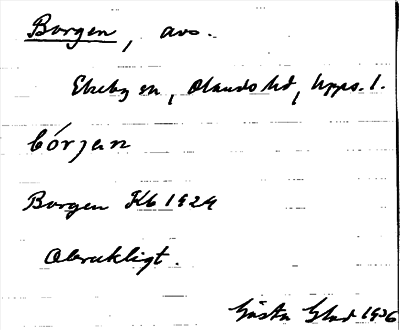 Borgen, avs.
Ekeby sn, Olands hd, Upps. l.
bórjan
Borgen Kb 1924
Obrukligt.
Gösta Glad 1936